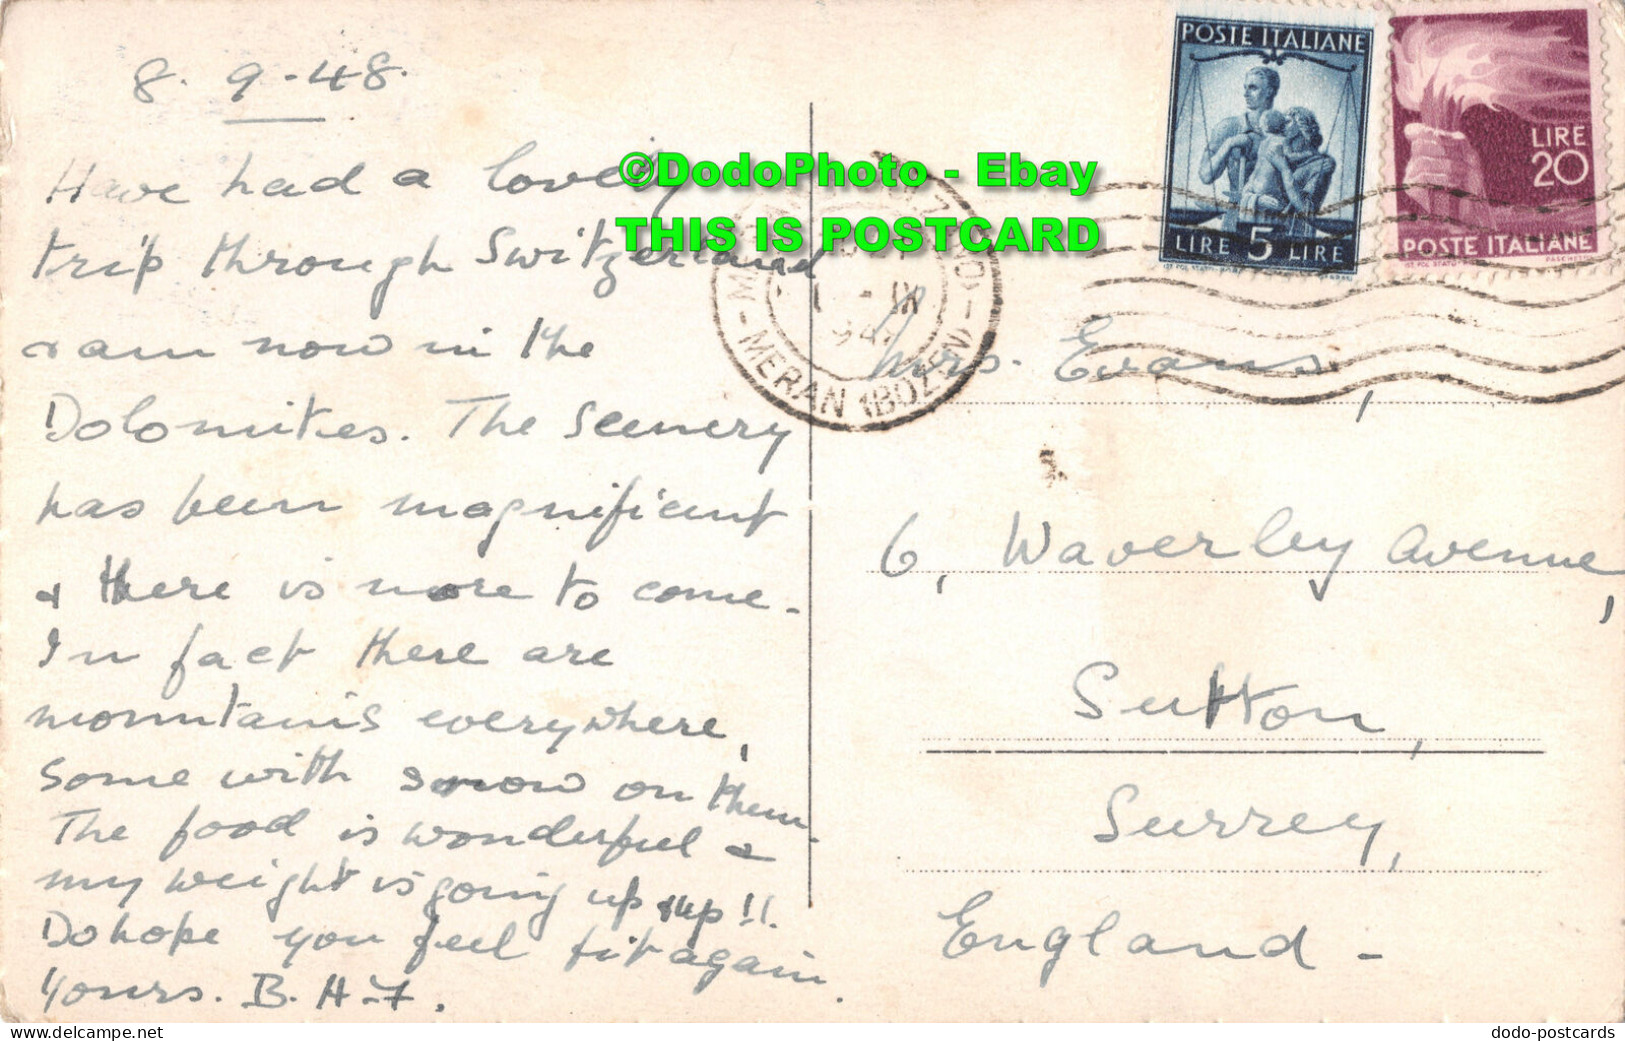 8. 9.-48.
Have had a lovely
trip through Switzerland
& am now in the
Dolomites. The scenery
has been magnificent
& there is more to come.
In fact there are
mountains everywhere,
some with snow on them.
The food is wonderful &
my weight is going up & up!!
Do hope you feel fit again.
Yours. B. H. F.
©DodoPhoto - Ebay
THIS IS POSTCARD
POSTE ITALIANE
LIRE 5 LIRE
LIRE
20
POSTE ITALIANE
- MERAN (BOZEN) -
Mrs. Evans,
6, Waverley Avenue,
Sutton,
Surrey,
England -
delcampe.net
dodo-postcards